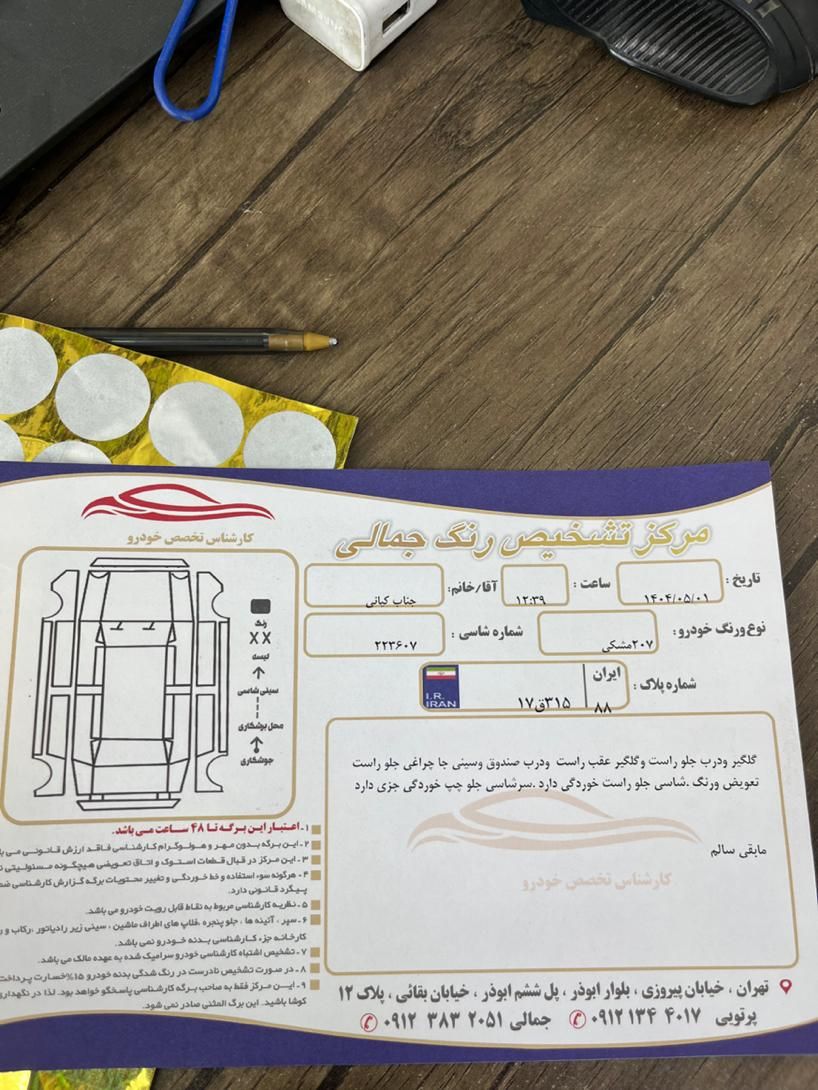 SAMSUNG
کارشناس تخصص خودرو
مرکز تشخیص رنگ جمالی
تاریخ : ۱۴۰۴/۰۵/۰۱
ساعت : ۱۲:۳۹
آقا/خانم: جناب کیانی
نوع ورنگ خودرو : ۲۰۷مشکی
شماره شاسی : ۲۲۳۶۰۷
شماره پلاک :
ایران
۸۸
۳۱۵ق۱۷
I.R.
IRAN
رنگ
XX
لیسه
سینی شاسی
محل برشکاری
جوشکاری
گلگیر ودرب جلو راست وگلگیر عقب راست ودرب صندوق وسینی جا چراغی جلو راست
تعویض ورنگ .شاسی جلو راست خوردگی دارد .سرشاسی جلو چپ خوردگی جزی دارد
مابقی سالم
کارشناس تخصص خودرو
۱- اعتبار این برگه تا ۴۸ ساعت می باشد.
۲- این برگه بدون مهر و هولوگرام کارشناسی فاقد ارزش قانونی می
۳- این مرکز در قبال قطعات استوک و اتاق تعویضی هیچگونه مسئولیتی
۴- هرگونه سوء استفاده و خط خوردگی و تغییر محتویات برگه گزارش کارشناسی
پیگرد قانونی دارد.
۵- نظریه کارشناسی مربوط به نقاط قابل رویت خودرو می باشد.
۶- سپر ، آئینه ها ، جلو پنجره ،فلاپ های اطراف ماشین ، سینی زیر رادیاتور ،رکاب و
کارخانه جزء کارشناسی بدنه خودرو نمی باشد.
۷- تشخیص اشتباه کارشناسی خودرو سرامیک شده به عهده مالک می باشد.
۸- در صورت تشخیص نادرست در رنگ شدگی بدنه خودرو ۱۵%خسارت پرداخت
۹- این مرکز فقط به صاحب برگه کارشناسی پاسخگو خواهد بود. لذا در نگهداری
کوشا باشید. این برگ المثنی صادر نمی شود.
تهران ، خیابان پیروزی ، بلوار ابوذر ، پل ششم ابوذر ، خیابان بقائی ، پلاک ۱۲
پرتویی ۰۹۱۲ ۱۳۴ ۴۰۱۷ جمالی ۰۹۱۲ ۳۸۳ ۲۰۵۱